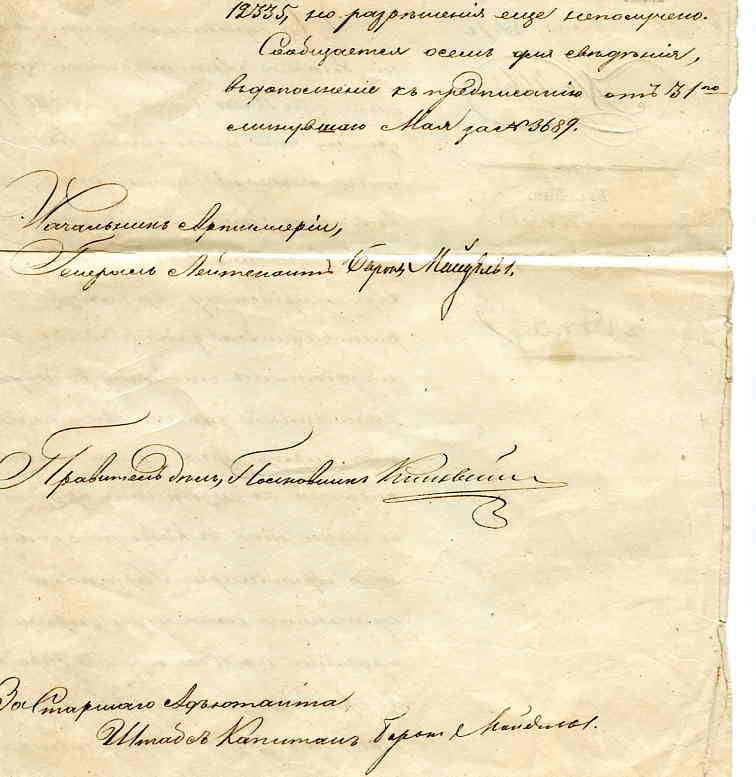 12335, но разрѣшенія еще неполучено.
Сообщается о семъ для свѣдѣнія,
въ дополненіе къ предписанію отъ 31го
минувшаго Мая за № 3689.
Начальникъ Артиллеріи,
Генералъ Лейтенантъ Баронъ Майдель 1.
Правитель дѣлъ, Полковникъ
За Старшаго Адъютанта
Штабсъ Капитанъ Баронъ Майдель 1.